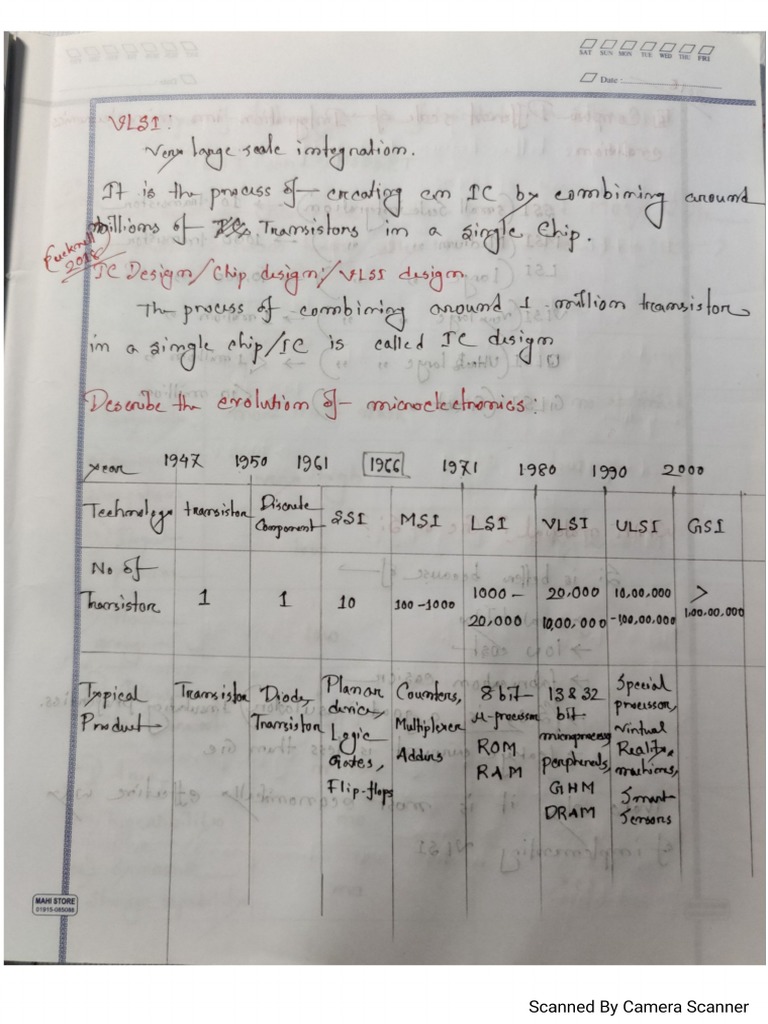 SAT SUN MON TUE WED THU FRI
Date :
VLSI :
Very large scale integration.
It is the process of creating an IC by combining around
millions of Transistors in a single chip.
2018
IC Design/Chip design/VLSI design
The process of combining around 1 million transistor
in a single chip/IC is called IC design
Describe the evolution of microelectronics :
year 1947 1950 1961 1966 1971 1980 1990 2000
Technology transistor Discrete Component SSI MSI LSI VLSI ULSI GSI
No of Transistor 1 1 10 100-1000 1000-20,000 20,000 10,00,000 10,00,000 -1,00,00,000 > 1,00,00,000
Typical Product Transistor Diode, Transistor Planar device, Logic Gates, Flip-flops Counters, Multiplexer Adders 8 bit μ-processor ROM RAM 13 & 32 bit microprocessor peripherals, GHM DRAM Special processor, Virtual Reality machines, Smart Sensors
MAHI STORE
01915-085088
Scanned By Camera Scanner